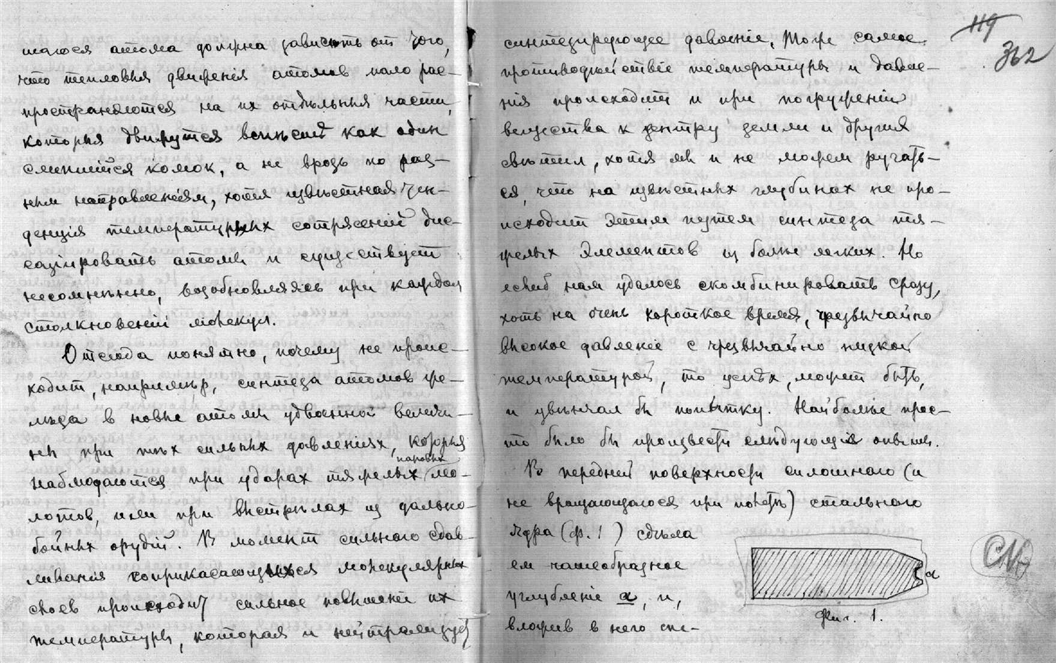 шагося атома должна зависить от того,
что тепловыя движения атомов мало рас-
пространяются на их отдѣльныя части,
которыя движутся вмѣстѣ как один
комок, а не врозь по раз-
ным направлениям, хотя извѣстная тен-
денция температурных сотрясений дис-
социировать атомы и существует
несомнѣнно, возобновляясь при каждом
столкновении молекул.
Отсюда понятно, почему не проис-
ходит, например, синтеза атомов же-
лѣза в новые атомы удвоенной величи-
ны при тѣх сильных давлениях, которыя
наблюдаются при ударах тяжелых паровых мо-
лотов, или при выстрѣлах из дально-
бойных орудий. В момент сильного сдав-
ливания соприкасающихся молекулярных
слоев происходит сильное повышение их
температуры, которая и нейтрализует
119
362
синтезирующее давление. То же самое
противодѣйствие температуры и давле-
ния происходит и при погружении
вещества к центру земли и других
свѣтил, хотя мы и не можем ручать-
ся, что на извѣстных глубинах не про-
исходит этим путем синтеза тя-
желых элементов из болѣе легких. Но
еслиб нам удалось скомбинировать сразу,
хоть на очень короткое время, чрезвычайно
высокое давление с чрезвычайно низкой
температурой, то успѣх, может быть,
и увѣнчал бы попытку. Наиболѣе прос-
то было бы произвести слѣдующий опыт.
В передней поверхности сплошного (и
не вращающагося при полетѣ) стального
ядра (ф. 1) сдѣла
ем чашеобразное
углубление а, и,
вложив в него спе-
а
Фиг. 1.